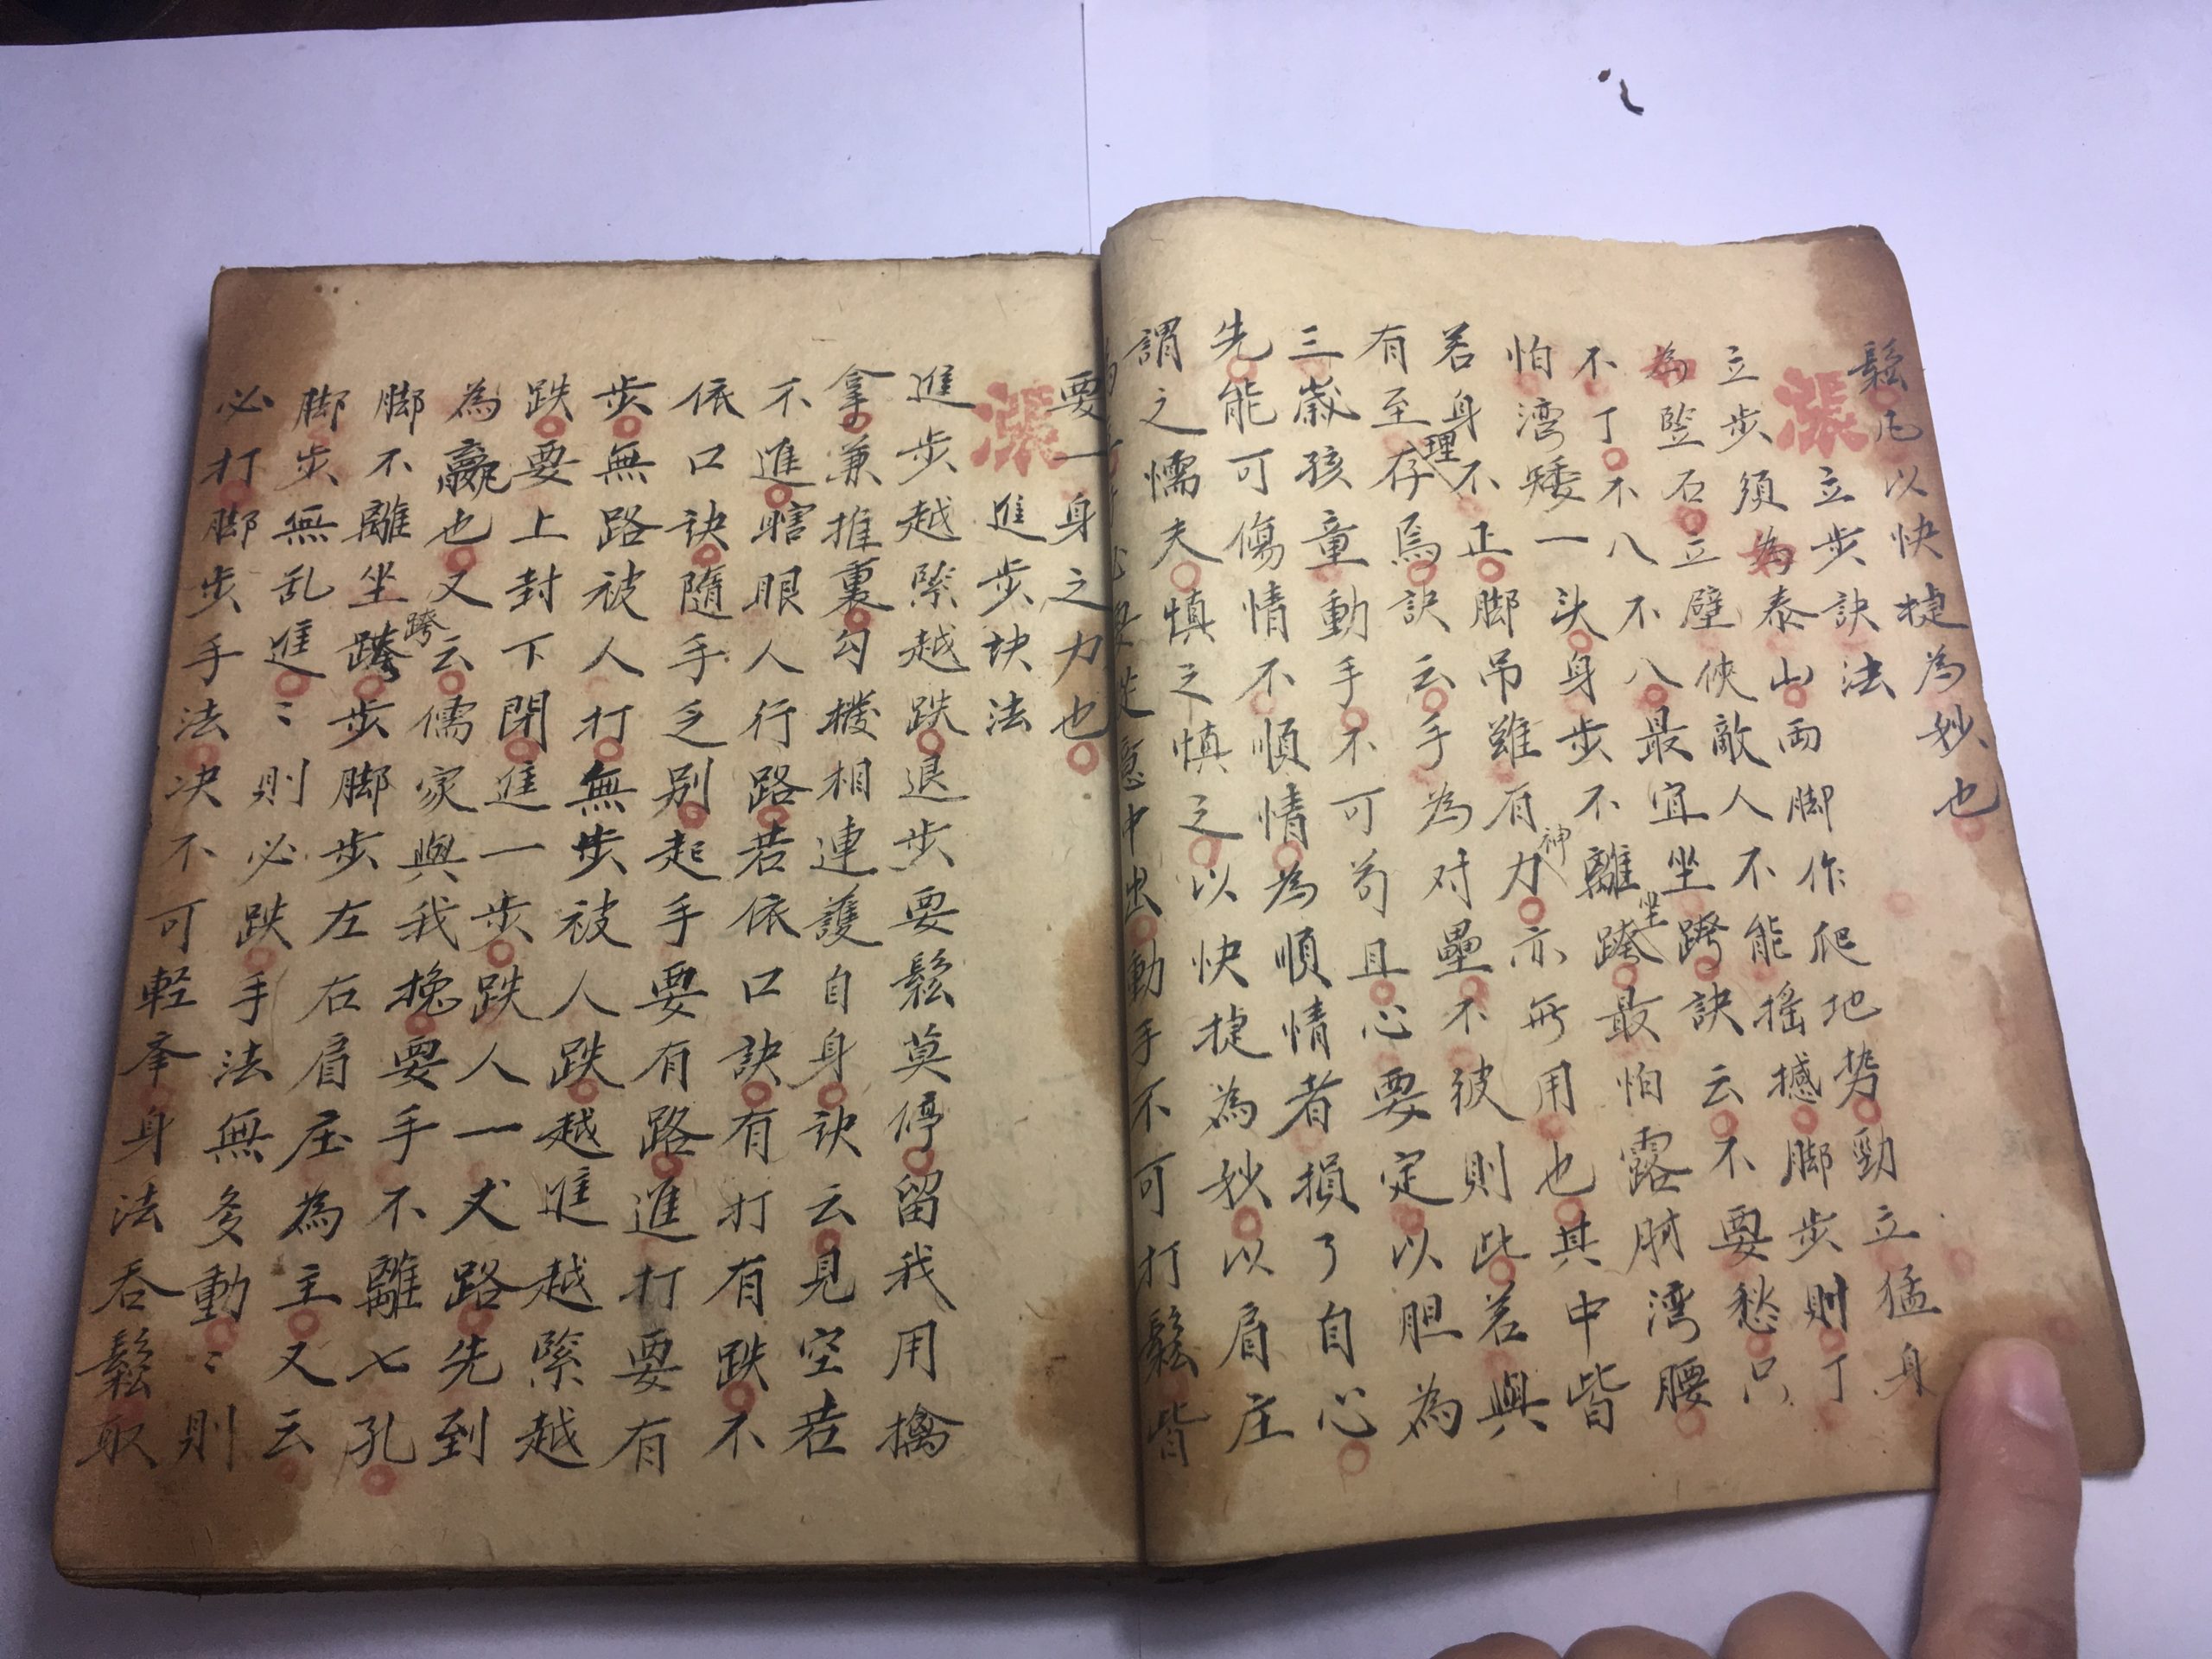 鬆凡以快捷為妙也
漲 立步訣法
立步須為泰山兩脚作爬地势勁立猛身
為豎石立壁使敵人不能搖撼脚步則丁
不丁不八不八最宜坐跨訣云不要愁只
怕湾矮一头身步不離跨坐最怕露肘湾腰
若身不正脚吊雖有力神亦無用也其中皆
有至理存焉訣云手為对壘不彼則此若與
三歲孩童動手不可苟且心要定以胆為
先能可傷情不順情為順情者損了自心
謂之懦夫慎之慎之以快捷為妙以肩庄
中出動手不可打鬆皆
要一身之力也
漲 進步訣法
進步越緊越跌退步要鬆莫停留我用擒
拿兼推裏勾撥相連護自身訣云見空若
不進瞎眼人行路若依口訣有打有跌不
依口訣隨手乏别起手要有路進打要有
步無路被人打無步被人跌越進越緊越
跌要上封下閉進一步跌人一丈路先到
為贏也又云儒家與我挽要手不離七孔
脚不離坐跨步脚步左右肩庄為主又云
脚步無乱進〻則必跌手法無多動〻則
必打脚步手法决不可輕举身法吞鬆取